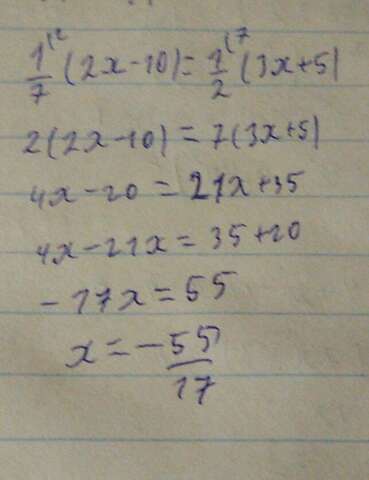 1/7 (2 (2x-10) = 1/2 (7 (3x+5)
2(2x-10) = 7(3x+5)
4x-20 = 21x+35
4x-21x = 35+20
-17x = 55
x = -55/17